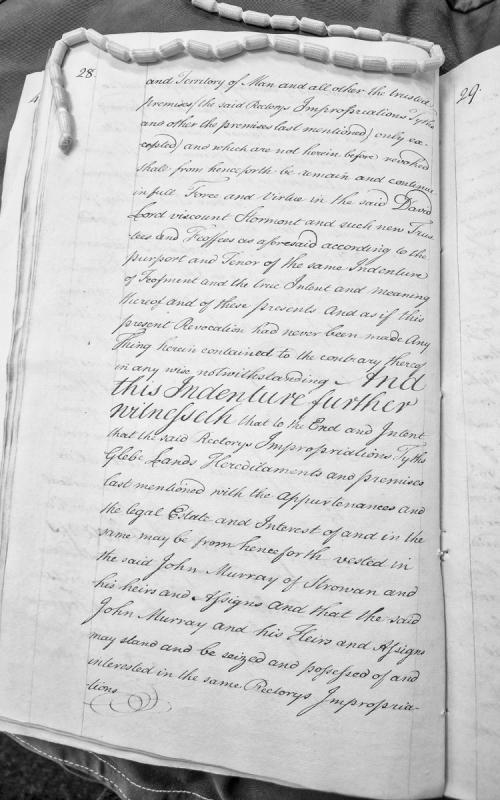 28
and Territory of Man and all other the trusted
premises (the said Rectorys Impropriations Tyths
and other the premises last mentioned) only ex-
cepted) and which are not herein before revoked
shall from henceforth be remain and continue
in full Force and Virtue in the said David
Lord viscount Stormont and such new Trus
tees and Feoffees as aforesaid according to the
purport and Tenor of the same Indenture
of Feofment and the true Intent and meaning
thereof and of these presents And as if this
present Revocation had never been made Any
Thing herein contained to the contrary thereof
in any wise notwithstanding And
this Indenture further
witnesseth that to the End and Intent
that the said Rectorys Impropriations Tyths
Glebe Lands Hereditaments and premises
last mentioned with the Appurtenances and
the legal Estate and Interest of and in the
same may be from henceforth vested in
the said John Murray of Strowan and
his heirs and Assigns and that the said
John Murray and his Heirs and Assigns
may stand and be seized and possessed of and
interested in the same Rectorys Impropria-
tions
29